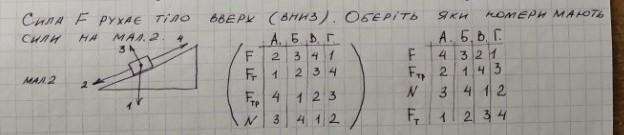 Сила F рухає тіло вверх (вниз). Оберіть яки номери мають
сили на мал. 2.
3 4
2
1
мал 2
А. Б. В. Г.
F 2 3 4 1
Fт 1 2 3 4
Fтр 4 1 2 3
N 3 4 1 2
А. Б. В. Г.
F 4 3 2 1
Fтр 2 1 4 3
N 3 4 1 2
Fт 1 2 3 4